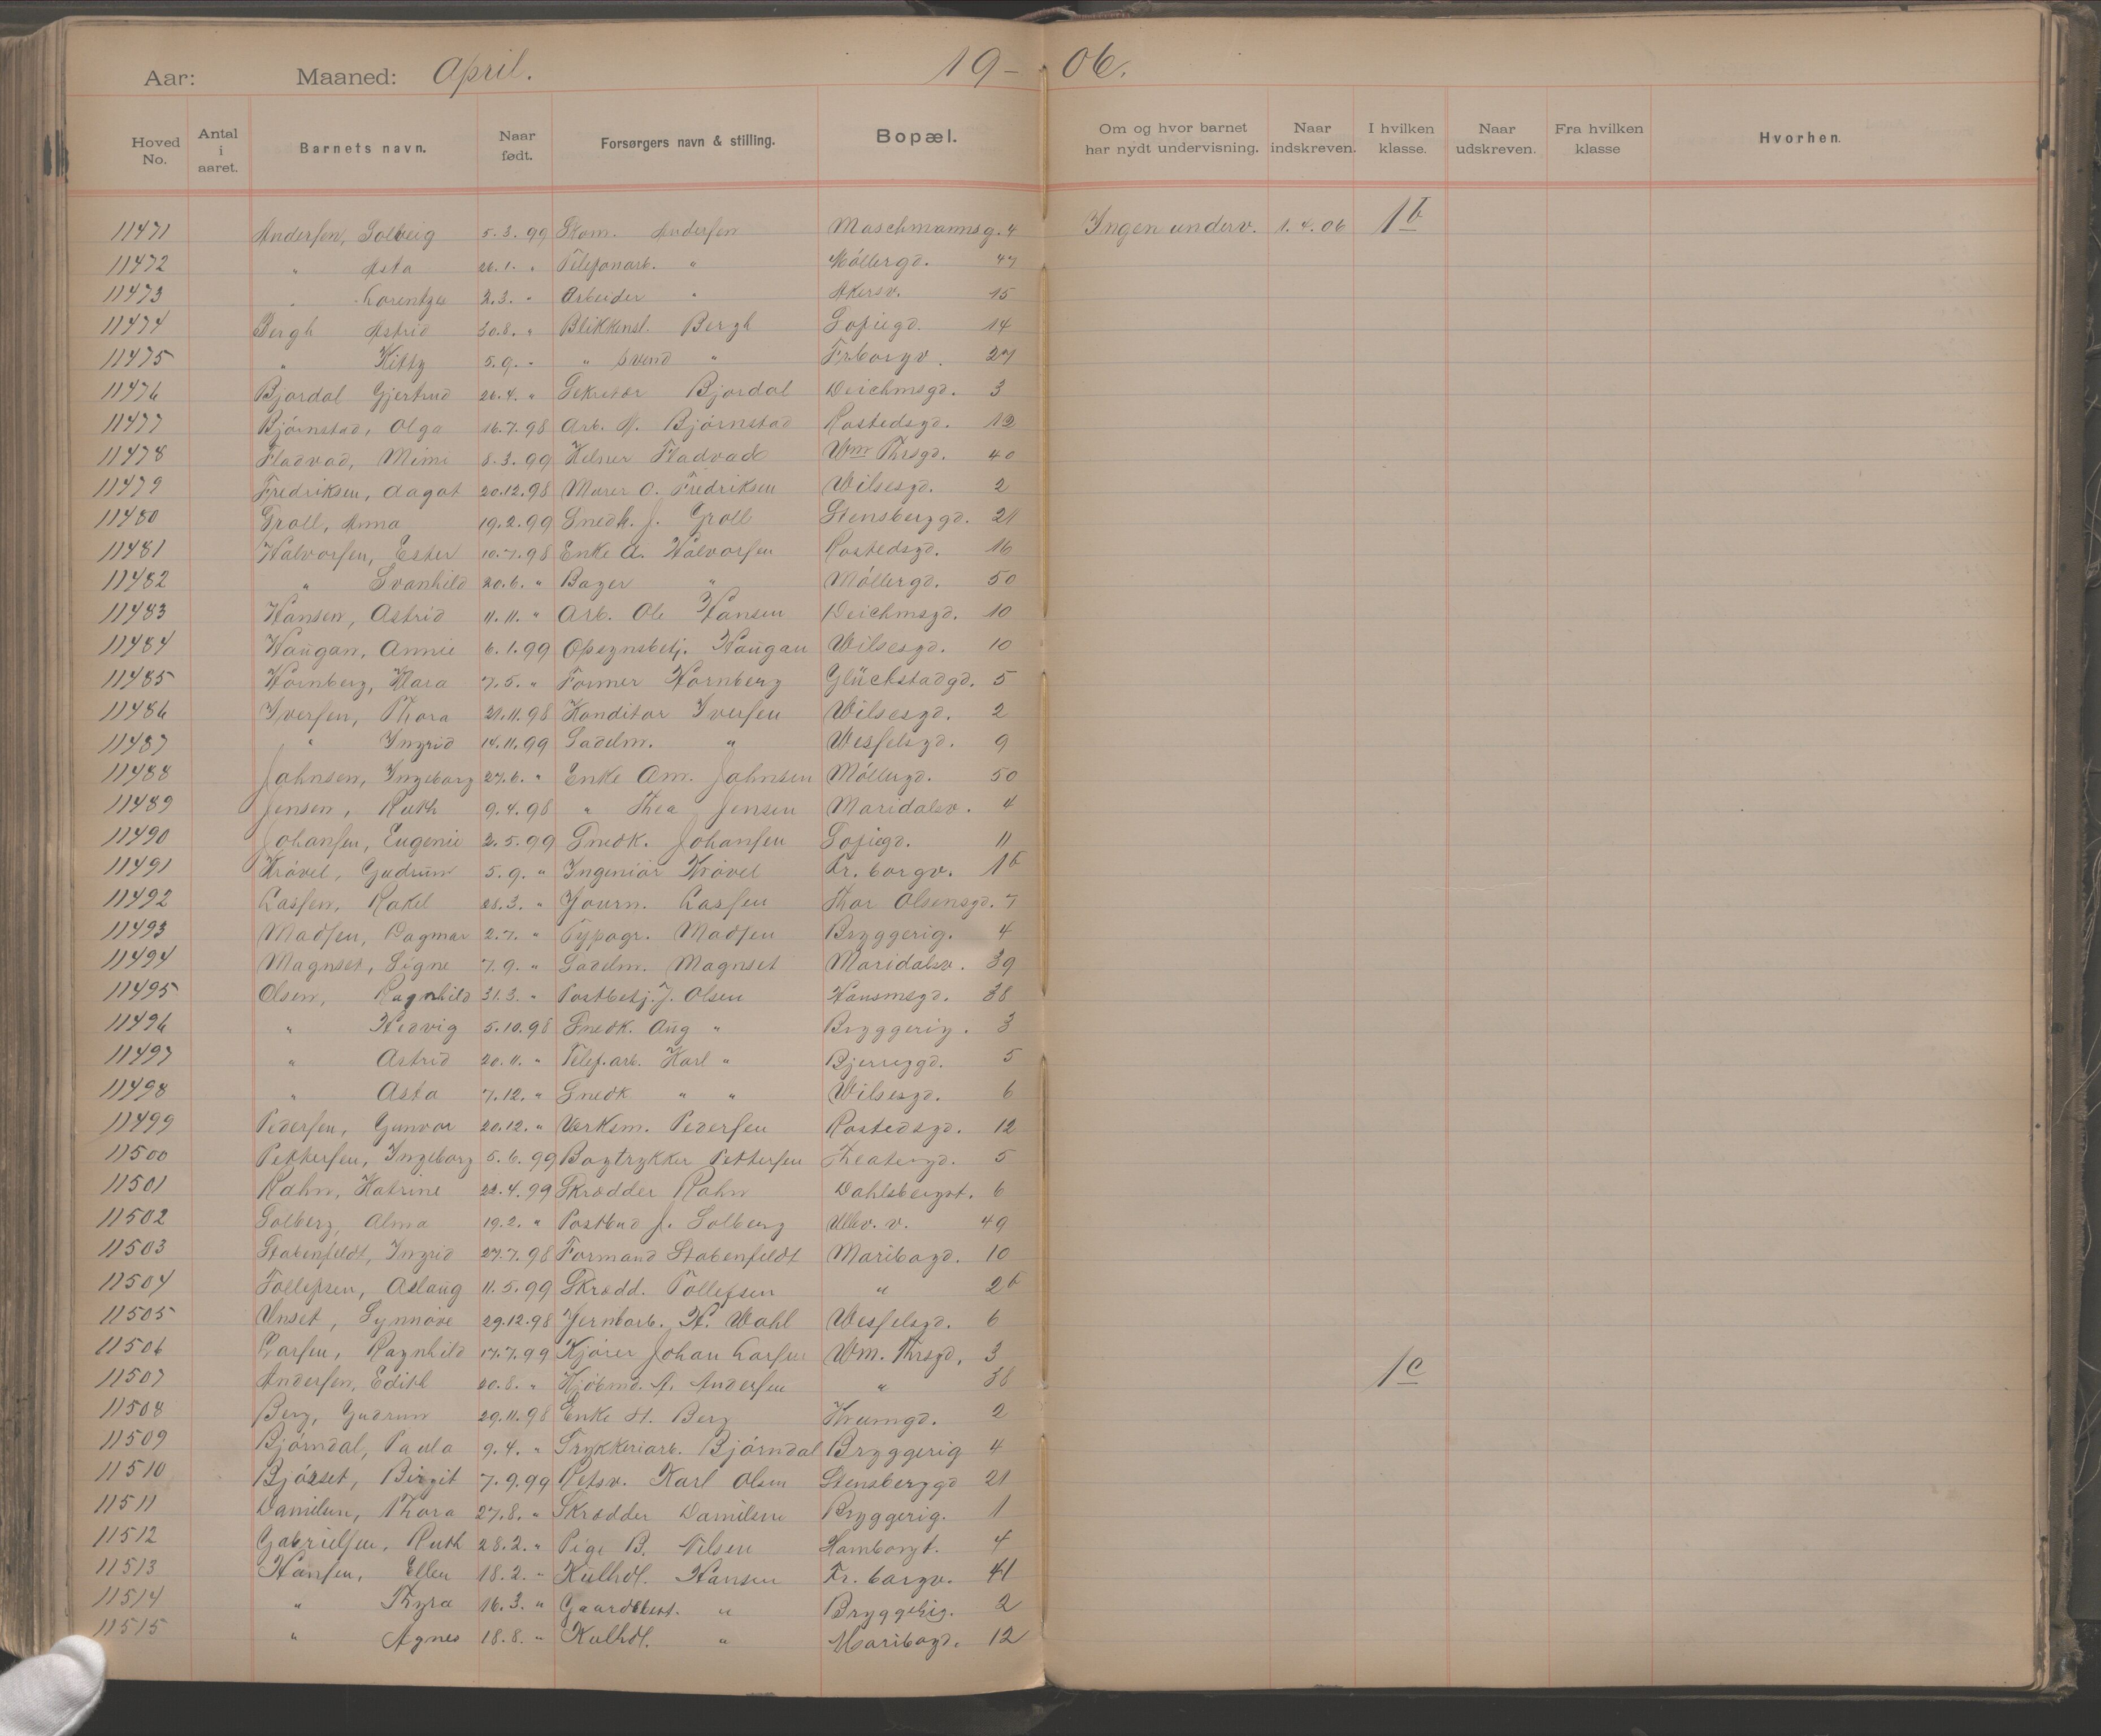 Aar: Maaned: April. 19-06.
Hoved No. Antal i aaret. Barnets navn. Naar født. Forsørgers navn & stilling. Bopæl. Om og hvor barnet har nydt undervisning. Naar indskreven. I hvilken klasse. Naar udskreven. Fra hvilken klasse Hvorhen.
11471 Andersen, Solveig 5.3.99 Skom. Andersen Maschmannsg. 4 Ingen underv. 1.4.06 1b
11472 " Asta 26.1. " Telefonarb. " Møllergd. 47
11473 " Lorentze 2.3. " Arbeider " Akersv. 15
11474 Bergh Astrid 30.8. " Blikkensl. Bergh Sofiegd. 14
11475 " Kitty 5.9. " " Svend " Frborgv. 27
11476 Bjordal Gjertrud 26.4. " Sekretær Bjordal Deichmsgd. 3
11477 Bjørnstad, Olga 16.7.98 Arb. A. Bjørnstad Rostedsgd. 12
11478 Fladvad, Mimi 8.3.99 Kelner Fladvad Wm Thrsgd. 40
11479 Fredriksen, Aagot 20.12.98 Murer O. Fredriksen Wilsesgd. 2
11480 Groll, Anna 19.2.99 Snedk. J. Groll Stensberggd. 21
11481 Halvorsen, Ester 10.7.98 Enke A. Halvorsen Rostedsgd. 16
11482 " Svanhild 20.6. " Bager " Møllergd. 50
11483 Hansen, Astrid 11.11. " Arb. Ole Hansen Deichmsgd. 10
11484 Haugan, Annie 6.1.99 Opsynsbetj. Haugan Wilsesgd. 10
11485 Hornberg, Klara 7.5. " Former Hornberg Glückstadgd. 5
11486 Iversen, Thora 21.11.98 Konditor Iversen Wilsesgd. 2
11487 " Ingrid 14.11.99 Sadelm. " Wesselsgd. 9
11488 Johnsen, Ingeborg 27.6. " Enke Am. Johnsen Møllergd. 50
11489 Jensen, Ruth 9.4.98 " Thea Jensen Maridalsv. 4
11490 Johansen, Eugenie 2.5.99 Snedk. Johansen Sofiegd. 11
11491 Krøvel, Gudrun 5.9. " Ingeniør Krøvel Fr. borgv. 1b
11492 Lassen, Rakel 28.3. " Journ. Lassen Thor Olsensgd. 7
11493 Madsen, Dagmar 2.7. " Typogr. Madsen Bryggerig. 4
11494 Magnset, Signe 7.9. " Sadelm. Magnset Maridalsv. 39
11495 Olsen, Ragnhild 31.3. " Postbetj. J. Olsen Hausmsgd. 38
11496 " Hedvig 5.10.98 Snedk. Aug " Bryggerig. 3
11497 " Astrid 20.11. " Telef.arb. Karl " Bjerreggd. 5
11498 " Asta 7.12. " Snedk " " Wilsesgd. 6
11499 Pedersen, Gunvor 20.12. " Verksm. Pedersen Rostedsgd. 12
11500 Pettersen, Ingeborg 5.6.99 Bogtrykker Pettersen Theatergd. 5
11501 Rahn, Katrine 22.4.99 Skrædder Rahn Dahlsbergst. 6
11502 Solberg, Alma 19.2. " Postbud J. Solberg Ullev. v. 49
11503 Stabenfeldt, Ingrid 27.7.98 Formand Stabenfeldt Maribogd. 10
11504 Tollefsen, Aslaug 11.5.99 Skrædd. Tollefsen " 2b
11505 Unset, Synnøve 29.12.98 Jernarb. H. Wahl Wesselsgd. 6
11506 Larsen, Ragnhild 17.7.99 Kjører Johan Larsen Wm. Thrsgd. 3
11507 Andersen, Edith 20.8. " Kjøbmd. A. Andersen " 38 1c
11508 Berg, Gudrun 29.11.98 Enke H. Berg Krumgd. 2
11509 Bjørndal, Paula 9.4. " Trykkeriarb. Bjørndal Bryggerig 4
11510 Bjørset, Birgit 7.9.99 Retsv. Karl Olsen Stensberggd 21
11511 Danielsen, Thora 27.8. " Skrædder Danielsen Bryggerig. 1
11512 Gabrielsen, Ruth 28.2. " Pige B. Nilsen Hamborgt. 4
11513 Hansen, Ellen 18.2. " Kulhdl. Hansen Fr. borgv. 41
11514 " Thyra 16.3. " Gaardsbest. " Bryggerig. 2
11515 " Agnes 18.8. " Kulhdl. " Maribogd. 12